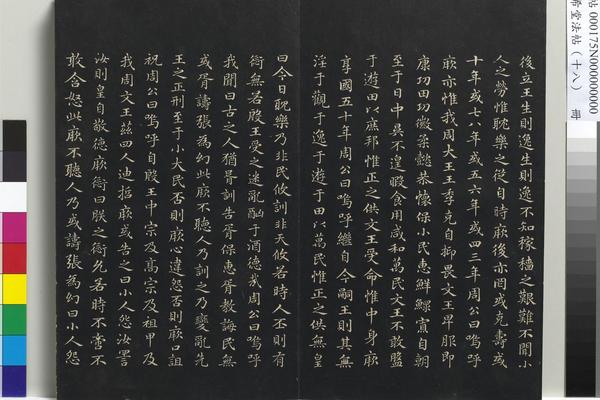 帖 000175N000000000
希堂法帖（十八） 冊
後立王生則逸生則逸不知稼穡之艱難不聞小
人之勞惟耽樂之從自時厥後亦罔或克壽或
十年或七八年或五六年或四三年周公曰嗚呼
厥亦惟我周大王王季克自抑畏文王卑服即
康功田功徽柔懿恭懷保小民惠鮮鰥寡自朝
至于日中昃不遑暇食用咸和萬民文王不敢盤
于遊田以庶邦惟正之供文王受命惟中身厥
享國五十年周公曰嗚呼繼自今嗣王則其無
淫于觀于逸于遊于田以萬民惟正之供無皇
曰今日耽樂乃非民攸訓非天攸若時人丕則有
愆無若殷王受之迷亂酗于酒德哉周公曰嗚呼
我聞曰古之人猶胥訓告胥保惠胥教誨民無
或胥譸張為幻此厥不聽人乃訓之乃變亂先
王之正刑至于小大民否則厥心違怨否則厥口詛
祝周公曰嗚呼自殷王中宗及高宗及祖甲及
我周文王茲四人迪哲厥或告之曰小人怨汝詈
汝則皇自敬德厥愆曰朕之愆允若時不啻不
敢含怒此厥不聽人乃或譸張為幻曰小人怨